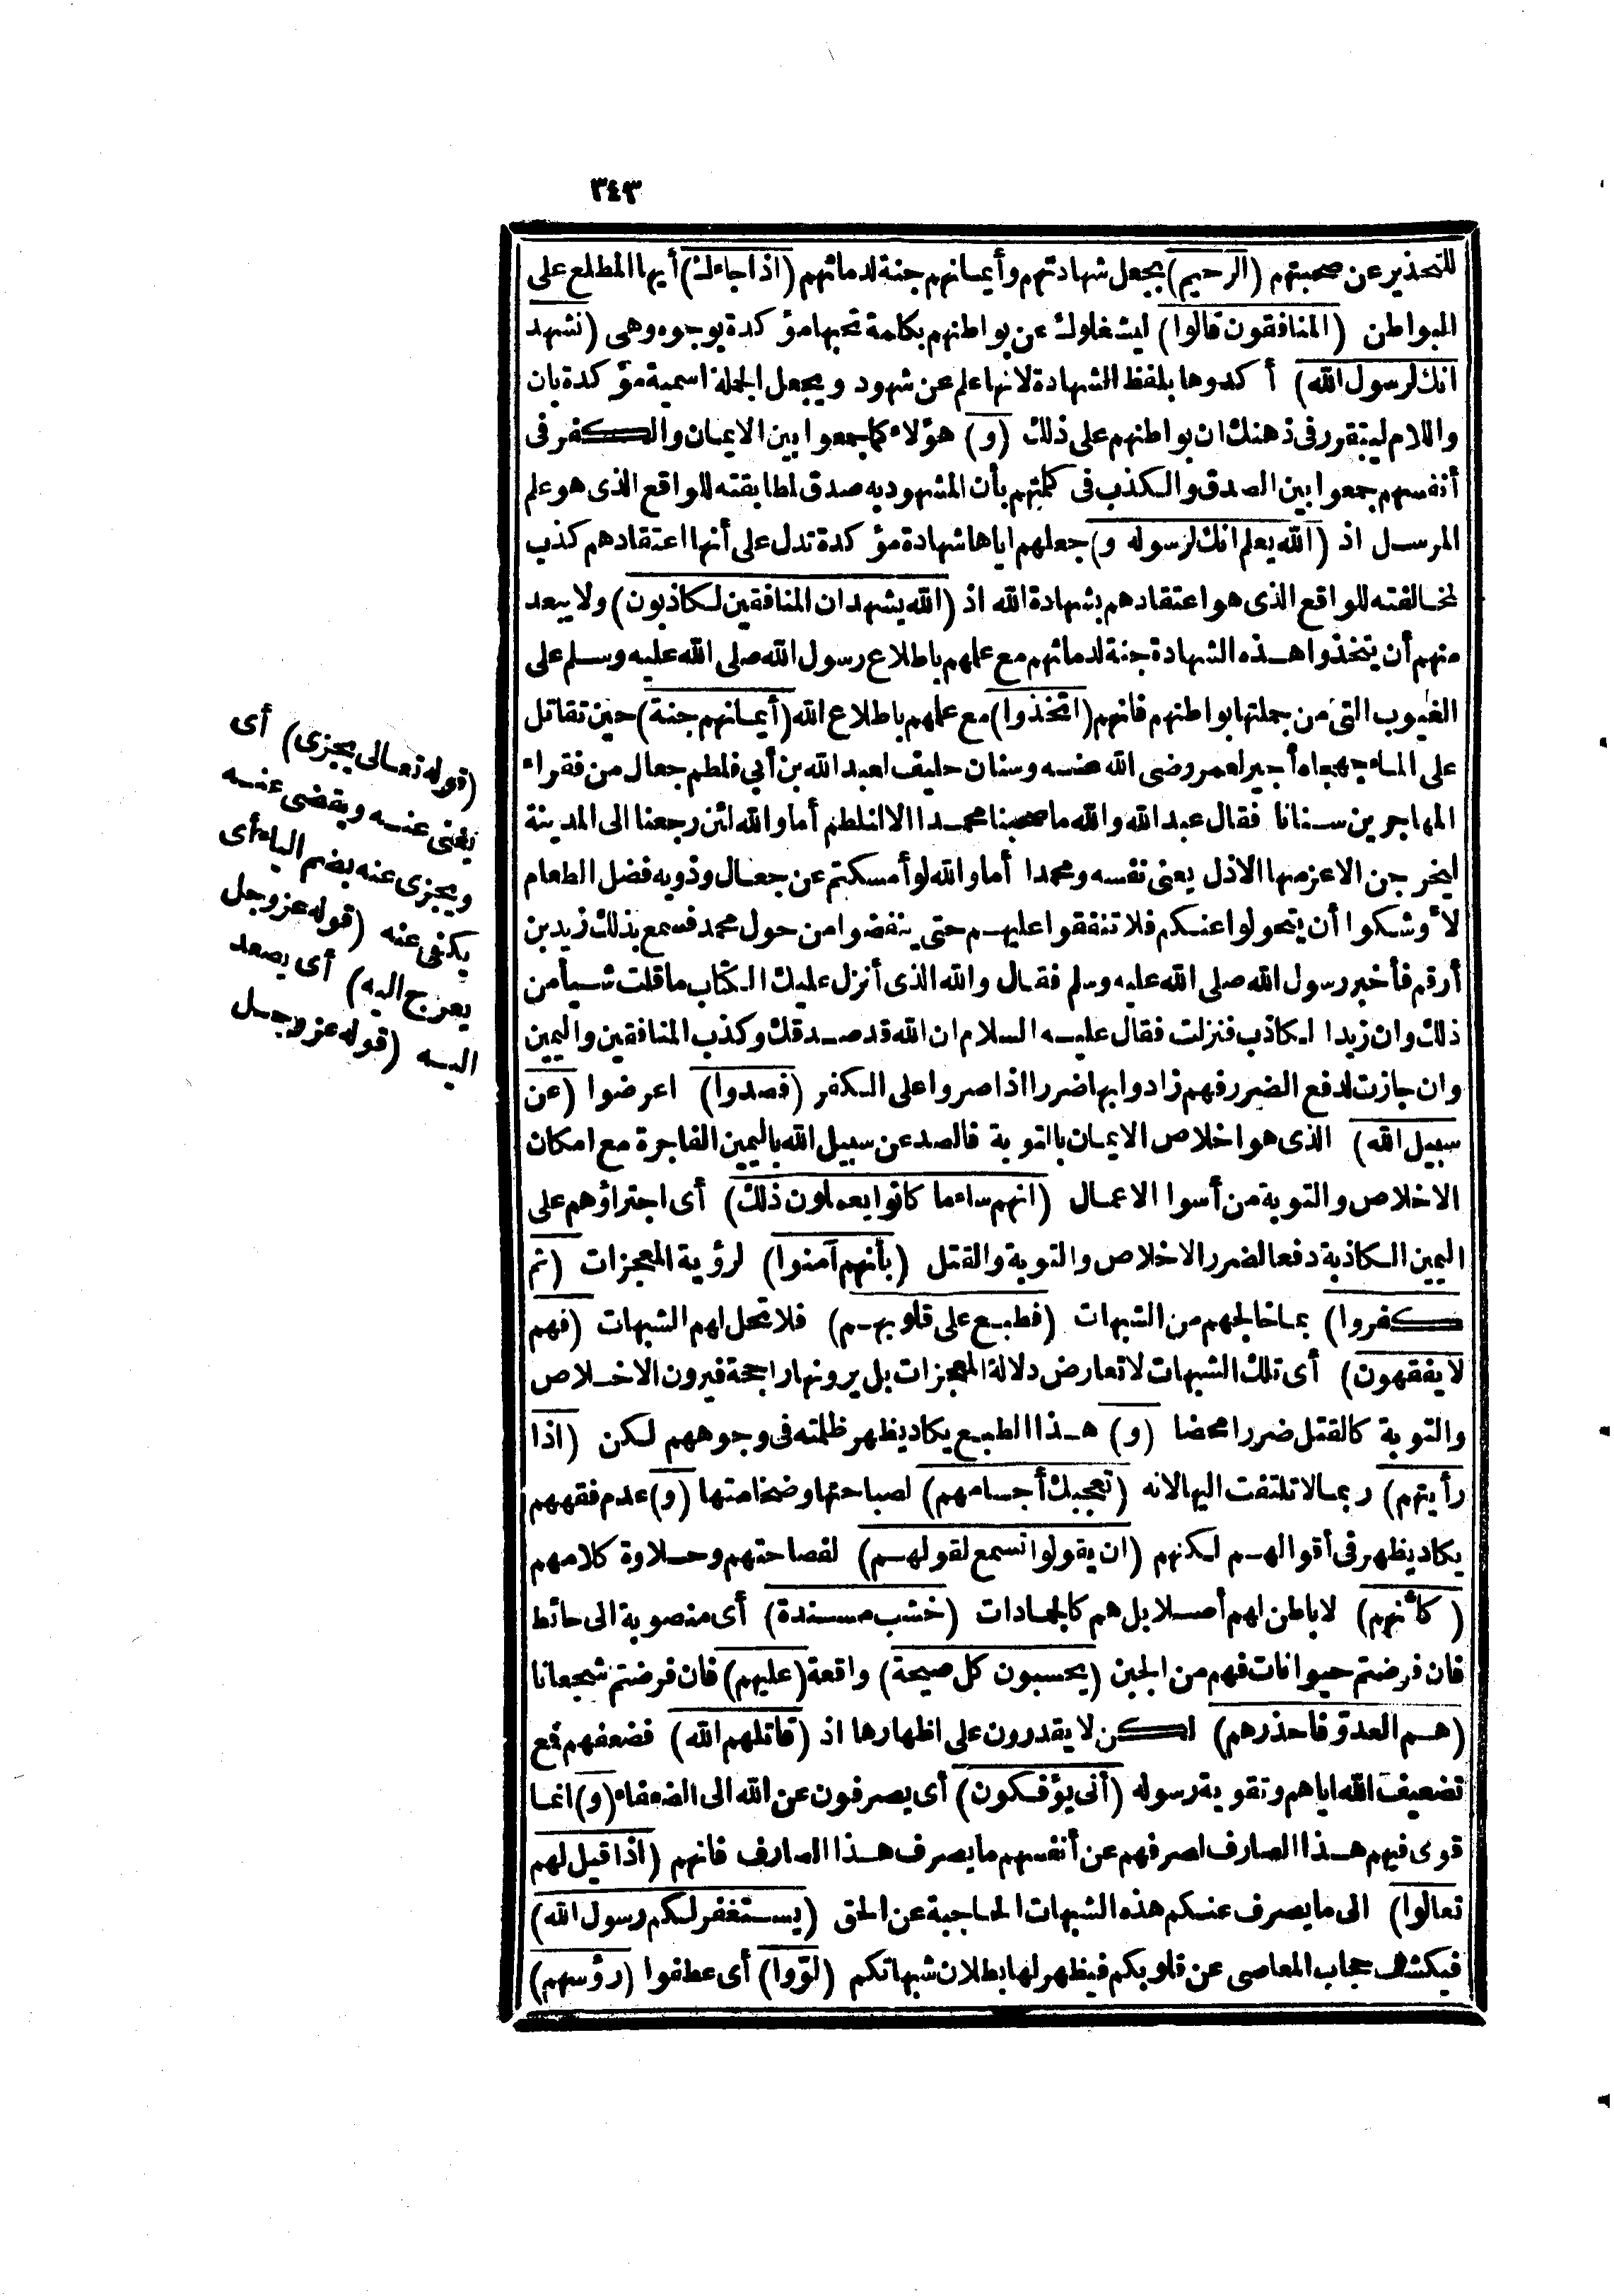 ٣٤٣
للتحذير عن صحبتهم (الرحيم) بجعل شهادتهم وأيمانهم جنة لدمائهم (اذا جاءك) أيها المطلع على
البواطن (المنافقون قالوا) ليشغلوك عن بواطنهم بكلمة تحبها مؤكدة بوجوه وهى (نشهد
انك لرسول الله) أكدوها بلفظ الشهادة لانها علم عن شهود وبجعل الجملة اسمية مؤكدة بان
واللام ليتقرر فى ذهنك ان بواطنهم على ذلك (و) هؤلاء كما جمعوا بين الايمان والكفر فى
أنفسهم جمعوا بين الصدق والكذب فى كلمتهم بأن المشهود به صدق لمطابقته للواقع الذى هو علم
المرسل اذ (الله يعلم انك لرسوله و) جعلهم اياها شهادة مؤكدة تدل على أنها اعتقادهم كذب
لمخالفته للواقع الذى هو اعتقادهم بشهادة الله اذ (الله يشهد ان المنافقين لكاذبون) ولا يبعد
منهم أن يتخذوا هذه الشهادة جنة لدمائهم مع علمهم باطلاع رسول الله صلى الله عليه وسلم على
الغيوب التى من جملتها بواطنهم فانهم (اتخذوا) مع علمهم باطلاع الله (أيمانهم جنة) حين تقاتل
على الماء جهجاه أجير لعمر رضى الله عنه وسنان حليف لعبد الله بن أبي فلطم جعال من فقراء
المهاجرين سنانا فقال عبد الله والله ما صحبنا محمدا الا لنلطم أما والله لئن رجعنا الى المدينة
ليخرجن الاعز منها الاذل يعنى نفسه ومحمدا أما والله لو أمسكتم عن جعال وذويه فضل الطعام
لأوشكوا أن يتحولوا عنكم فلا تنفقوا عليهم حتى ينفضوا من حول محمد فسمع بذلك زيد بن
أرقم فأخبر رسول الله صلى الله عليه وسلم فقال والله الذى أنزل عليك الكتاب ما قلت شيأ من
ذلك وان زيدا لكاذب فنزلت فقال عليه السلام ان الله قد صدقك وكذب المنافقين واليمين
وان جازت لدفع الضرر فهم زادوا بها ضررا اذا صروا على الكفر (فصدوا) اعرضوا (عن
سبيل الله) الذى هو اخلاص الايمان بالتوبة فالصد عن سبيل الله باليمين الفاجرة مع امكان
الاخلاص والتوبة من أسوا الاعمال (انهم ساء ما كانوا يعملون ذلك) أى اجتراؤهم على
اليمين الكاذبة دفعا لضرر الاخلاص والتوبة والقتل (بأنهم آمنوا) لرؤية المعجزات (ثم
كفروا) بما خالجهم من الشبهات (فطبع على قلوبهم) فلا تحل لهم الشبهات (فهم
لا يفقهون) أى تلك الشبهات لا تعارض دلالة المعجزات بل يرونها راجحة فيرون الاخلاص
والتوبة كالقتل ضررا محضا (و) هذا الطبع يكاد يظهر ظلمته فى وجوههم لكن (اذا
رأيتهم) ربما لا تلتفت اليها لانه (تعجبك أجسامهم) لصباحتها وضخامتها (و) عدم فقههم
يكاد يظهر فى أقوالهم لكنهم (ان يقولوا تسمع لقولهم) لفصاحتهم وحلاوة كلامهم
(كأنهم) لا باطن لهم أصلا بل هم كالجمادات (خشب مسندة) أى منصوبة الى حائط
فان فرضتم حيوانات فهم من الجبن (يحسبون كل صيحة) واقعة (عليهم) فان فرضتم شجعانا
(هم العدوّ فاحذرهم) لكن لا يقدرون على اظهارها اذ (قاتلهم الله) فضعفهم فع
تضعيف الله اياهم وتقوية رسوله (أنى يؤفكون) أى يصرفون عن الله الى الضعفاء (و) انما
قوى فيهم هذا الصارف لصرفهم عن أنفسهم ما يصرف هذا الصارف فانهم (اذا قيل لهم
تعالوا) الى ما يصرف عنكم هذه الشبهات الحاجبة عن الحق (يستغفر لكم رسول الله)
فيكشف حجاب المعاصى عن قلوبكم فيظهر لها بطلان شبهاتكم (لوّوا) أى عطفوا (رؤسهم)
(قوله تعالى يجزى) أى
يغنى عنه ويقضى عنه
ويجزى عنه بضم الياء أى
يكفى عنه (قوله عز وجل
يعرج اليه) أى يصعد
اليه (قوله عز وجل